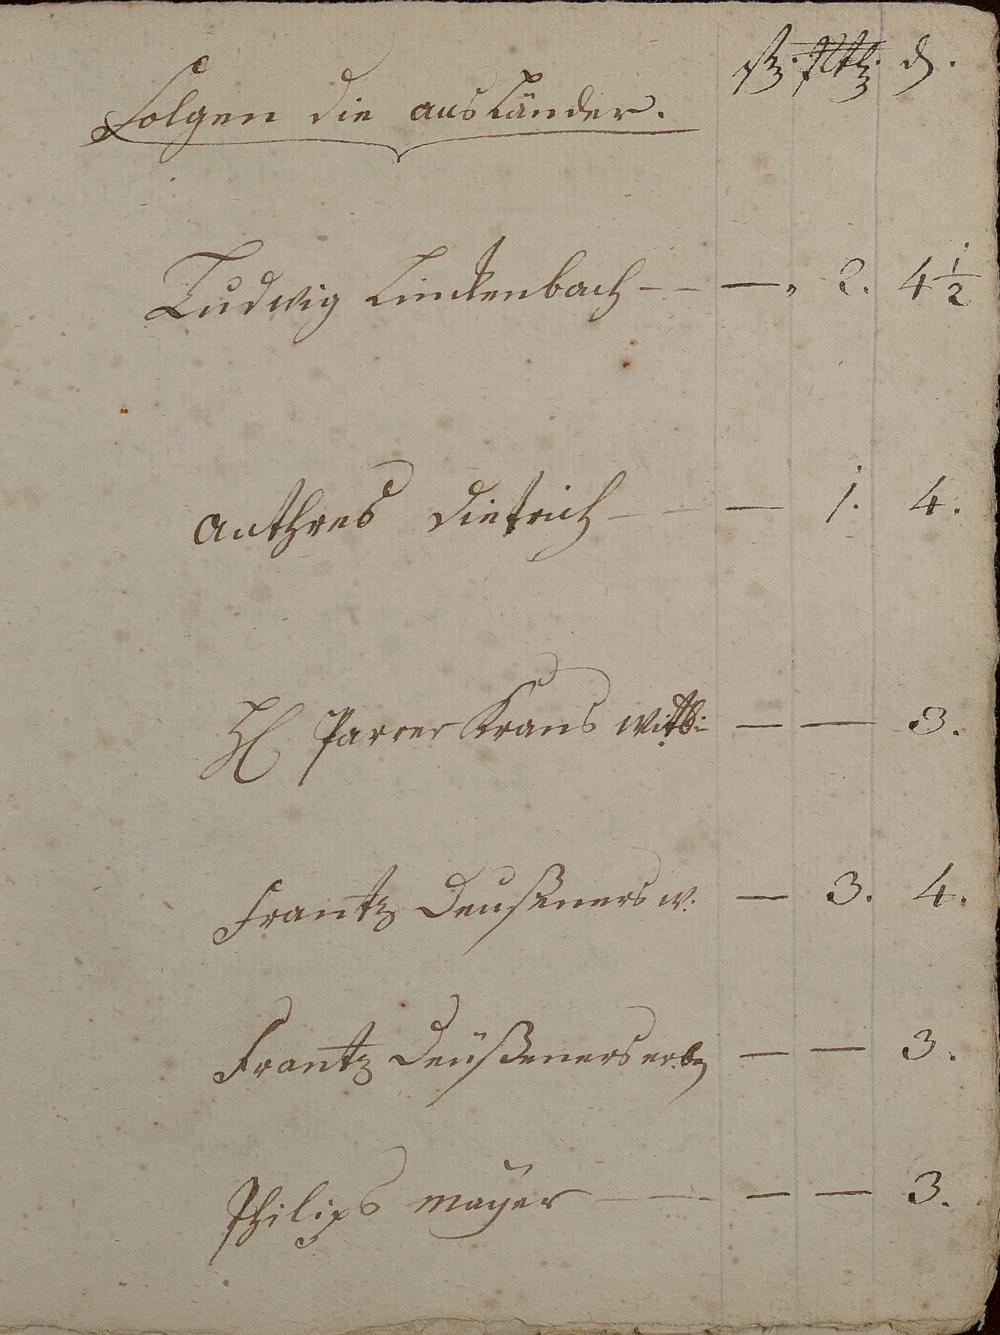 d.
Folgen die ausländer.
Ludwig Linckenbach — — — 2. 4 1/2
Anthres Dietrich — — — 1. 4.
H Parrer Krans Wittb: — — 3.
Frantz Deußeners w. — 3. 4.
Frantz Deüßeners erb — — 3.
Philips Mayer — — — — 3.